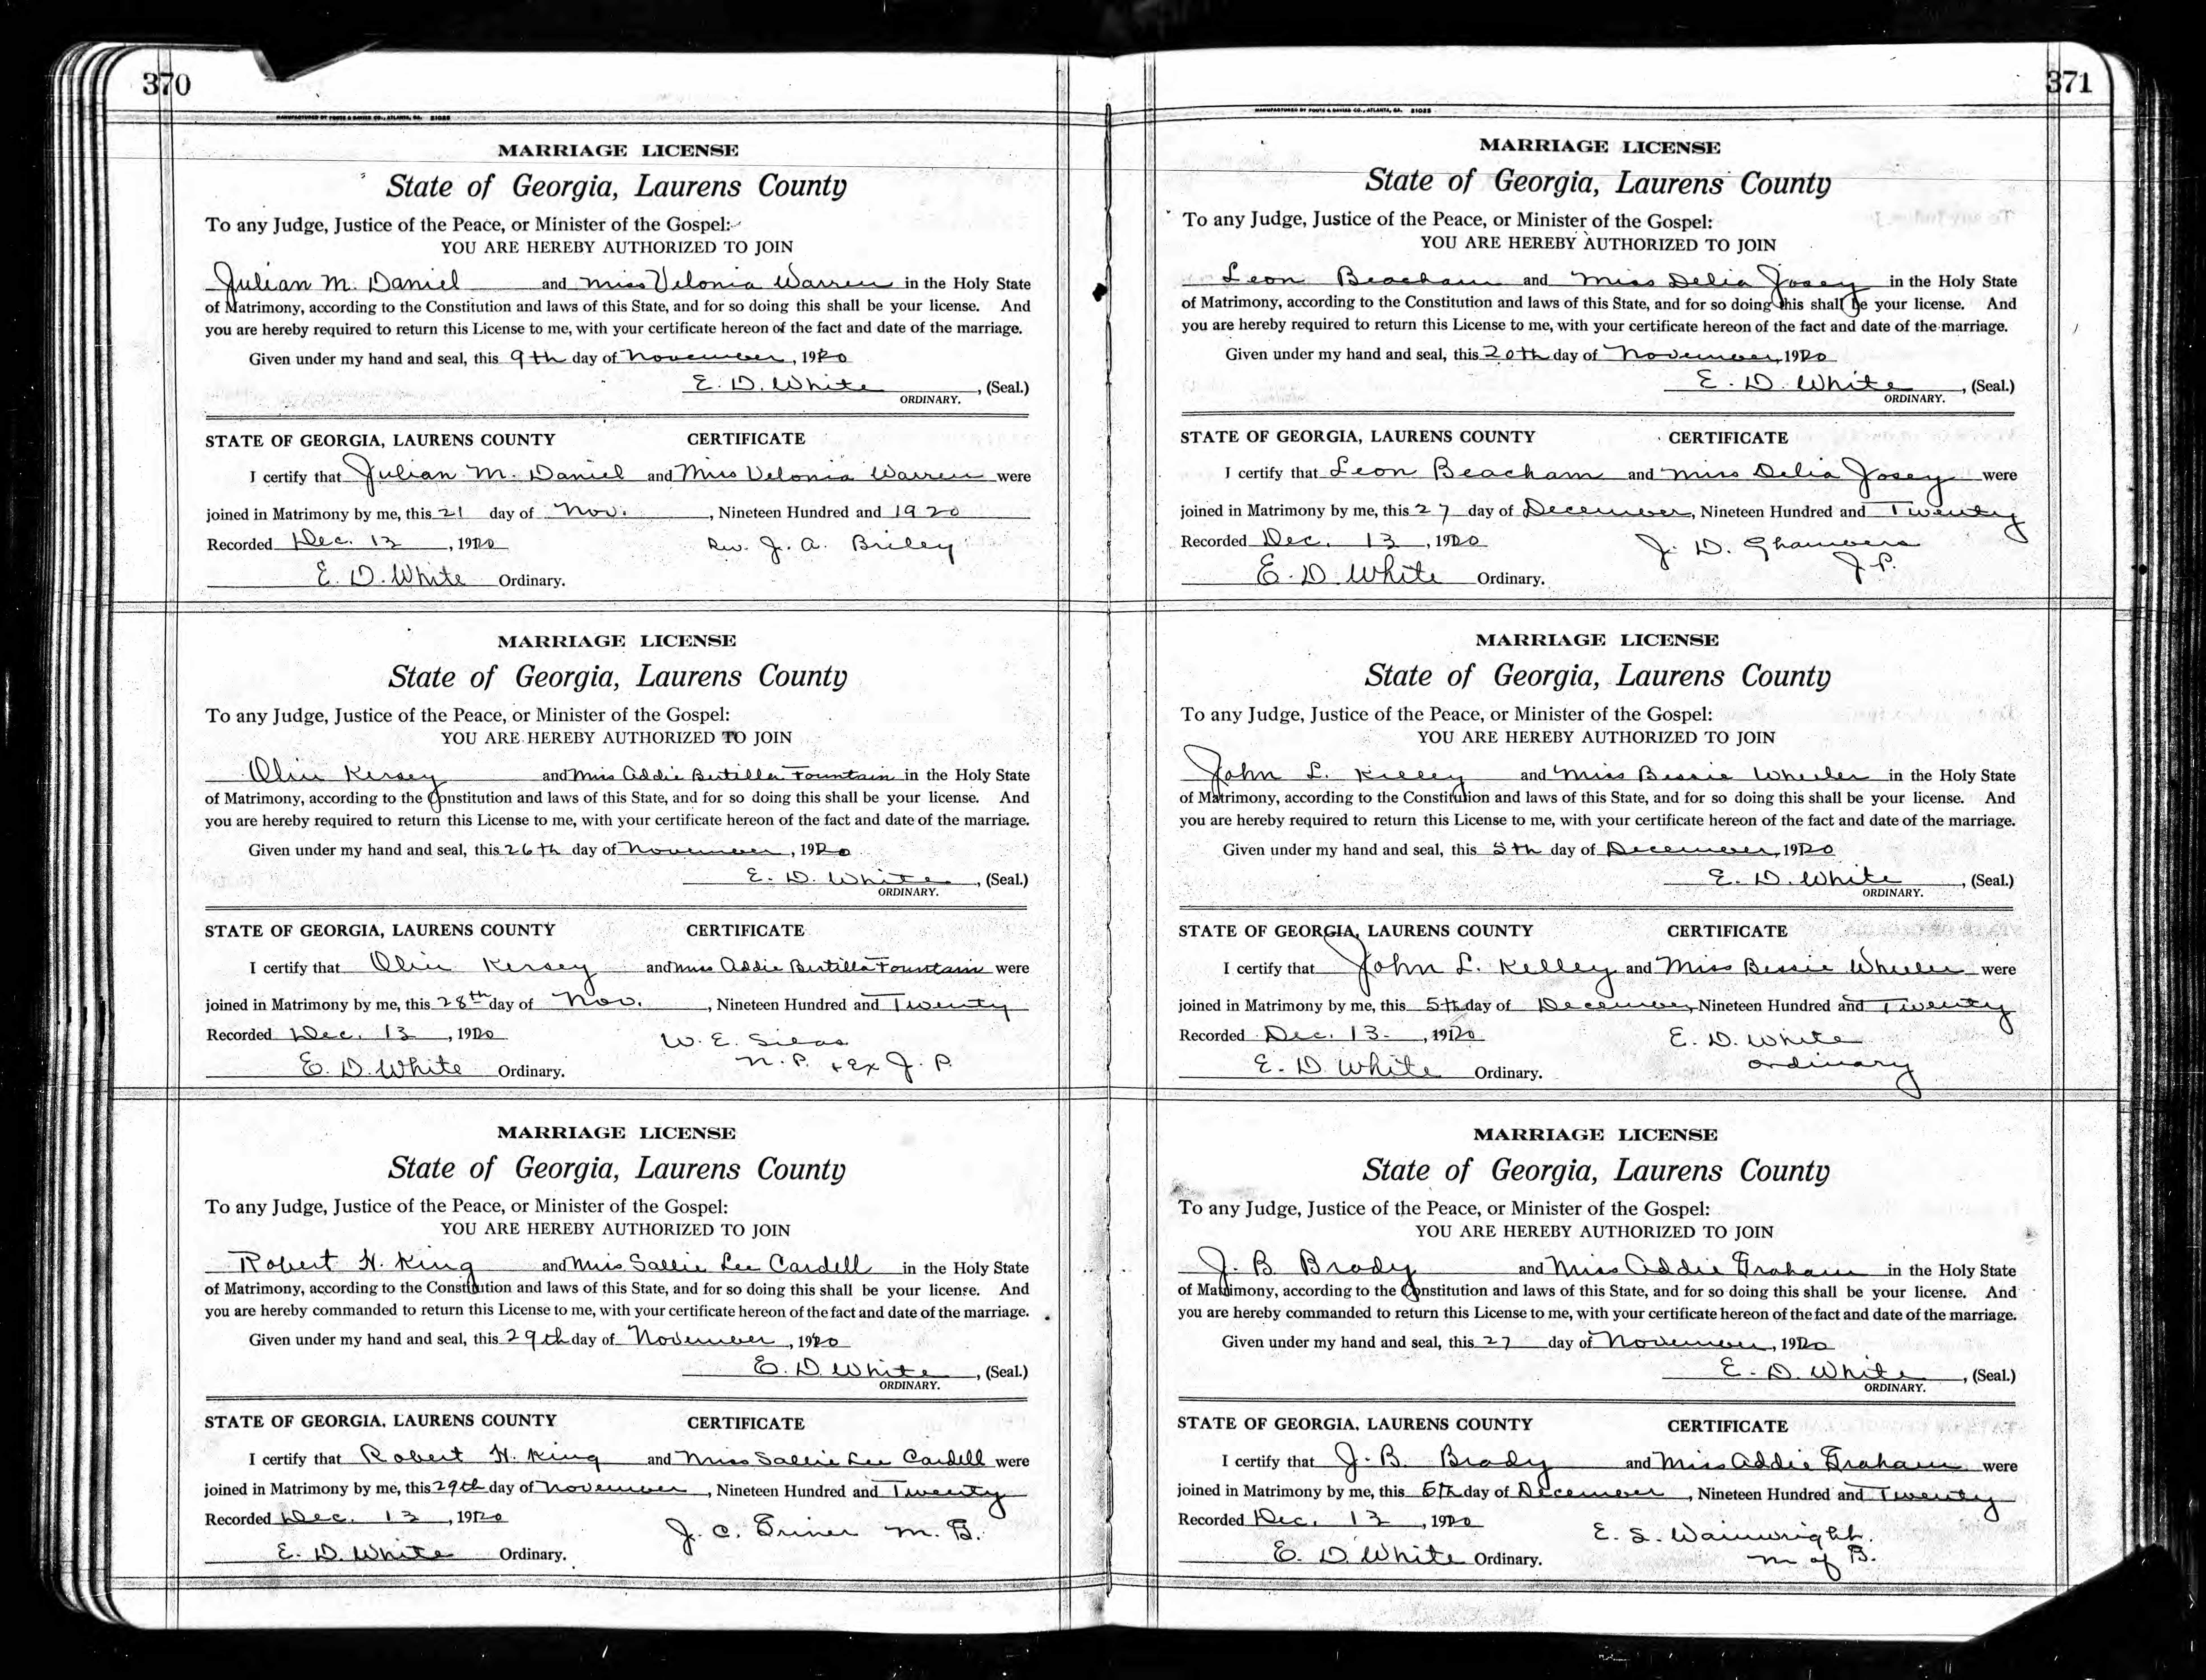 370
MANUFACTURED BY FOOTE & DAVIES CO., ATLANTA, GA. 21022
MARRIAGE LICENSE
State of Georgia, Laurens County
To any Judge, Justice of the Peace, or Minister of the Gospel:
YOU ARE HEREBY AUTHORIZED TO JOIN
Julian M. Daniel and Miss Velonia Warren in the Holy State
of Matrimony, according to the Constitution and laws of this State, and for so doing this shall be your license. And
you are hereby required to return this License to me, with your certificate hereon of the fact and date of the marriage.
Given under my hand and seal, this 9th day of November, 1920
E. D. White, (Seal.)
ORDINARY.
STATE OF GEORGIA, LAURENS COUNTY CERTIFICATE
I certify that Julian M. Daniel and Miss Velonia Warren were
joined in Matrimony by me, this 21 day of Nov., Nineteen Hundred and 1920
Recorded Dec. 13, 1920 Rev. J. A. Briley
E. D. White Ordinary.
MARRIAGE LICENSE
State of Georgia, Laurens County
To any Judge, Justice of the Peace, or Minister of the Gospel:
YOU ARE HEREBY AUTHORIZED TO JOIN
Olin Kersey and Miss Addie Bertilla Fountain in the Holy State
of Matrimony, according to the Constitution and laws of this State, and for so doing this shall be your license. And
you are hereby required to return this License to me, with your certificate hereon of the fact and date of the marriage.
Given under my hand and seal, this 26th day of November, 1920
E. D. White, (Seal.)
ORDINARY.
STATE OF GEORGIA, LAURENS COUNTY CERTIFICATE
I certify that Olin Kersey and Miss Addie Bertilla Fountain were
joined in Matrimony by me, this 28th day of Nov., Nineteen Hundred and Twenty
Recorded Dec. 13, 1920 W. E.
E. D. White Ordinary. N. P. + Ex J. P.
MARRIAGE LICENSE
State of Georgia, Laurens County
To any Judge, Justice of the Peace, or Minister of the Gospel:
YOU ARE HEREBY AUTHORIZED TO JOIN
Robert H. King and Miss Sallie Lee Cardell in the Holy State
of Matrimony, according to the Constitution and laws of this State, and for so doing this shall be your license. And
you are hereby commanded to return this License to me, with your certificate hereon of the fact and date of the marriage.
Given under my hand and seal, this 29th day of November, 1920
E. D. White, (Seal.)
ORDINARY.
STATE OF GEORGIA, LAURENS COUNTY CERTIFICATE
I certify that Robert H. King and Miss Sallie Lee Cardell were
joined in Matrimony by me, this 29th day of November, Nineteen Hundred and Twenty
Recorded Dec. 13, 1920 J. C. Griner M. G.
E. D. White Ordinary.
371
MANUFACTURED BY FOOTE & DAVIES CO., ATLANTA, GA. 21022
MARRIAGE LICENSE
State of Georgia, Laurens County
To any Judge, Justice of the Peace, or Minister of the Gospel:
YOU ARE HEREBY AUTHORIZED TO JOIN
Leon Beacham and Miss Delia Josey in the Holy State
of Matrimony, according to the Constitution and laws of this State, and for so doing this shall be your license. And
you are hereby required to return this License to me, with your certificate hereon of the fact and date of the marriage.
Given under my hand and seal, this 20th day of November, 1920
E. D. White, (Seal.)
ORDINARY.
STATE OF GEORGIA, LAURENS COUNTY CERTIFICATE
I certify that Leon Beacham and Miss Delia Josey were
joined in Matrimony by me, this 27 day of December, Nineteen Hundred and Twenty
Recorded Dec. 13, 1920 J. D. Chambers
E. D. White Ordinary. J. P.
MARRIAGE LICENSE
State of Georgia, Laurens County
To any Judge, Justice of the Peace, or Minister of the Gospel:
YOU ARE HEREBY AUTHORIZED TO JOIN
John L. Kelley and Miss Bessie Wheeler in the Holy State
of Matrimony, according to the Constitution and laws of this State, and for so doing this shall be your license. And
you are hereby required to return this License to me, with your certificate hereon of the fact and date of the marriage.
Given under my hand and seal, this 5th day of December, 1920
E. D. White, (Seal.)
ORDINARY.
STATE OF GEORGIA, LAURENS COUNTY CERTIFICATE
I certify that John L. Kelley and Miss Bessie Wheeler were
joined in Matrimony by me, this 5th day of December, Nineteen Hundred and Twenty
Recorded Dec. 13, 1920 E. D. White
E. D. White Ordinary. Ordinary
MARRIAGE LICENSE
State of Georgia, Laurens County
To any Judge, Justice of the Peace, or Minister of the Gospel:
YOU ARE HEREBY AUTHORIZED TO JOIN
J. B. Brady and Miss Addie Graham in the Holy State
of Matrimony, according to the Constitution and laws of this State, and for so doing this shall be your license. And
you are hereby commanded to return this License to me, with your certificate hereon of the fact and date of the marriage.
Given under my hand and seal, this 27 day of November, 1920
E. D. White, (Seal.)
ORDINARY.
STATE OF GEORGIA, LAURENS COUNTY CERTIFICATE
I certify that J. B. Brady and Miss Addie Graham were
joined in Matrimony by me, this 5th day of December, Nineteen Hundred and Twenty
Recorded Dec. 13, 1920 E. S. Wainwright.
E. D. White Ordinary. M of B.